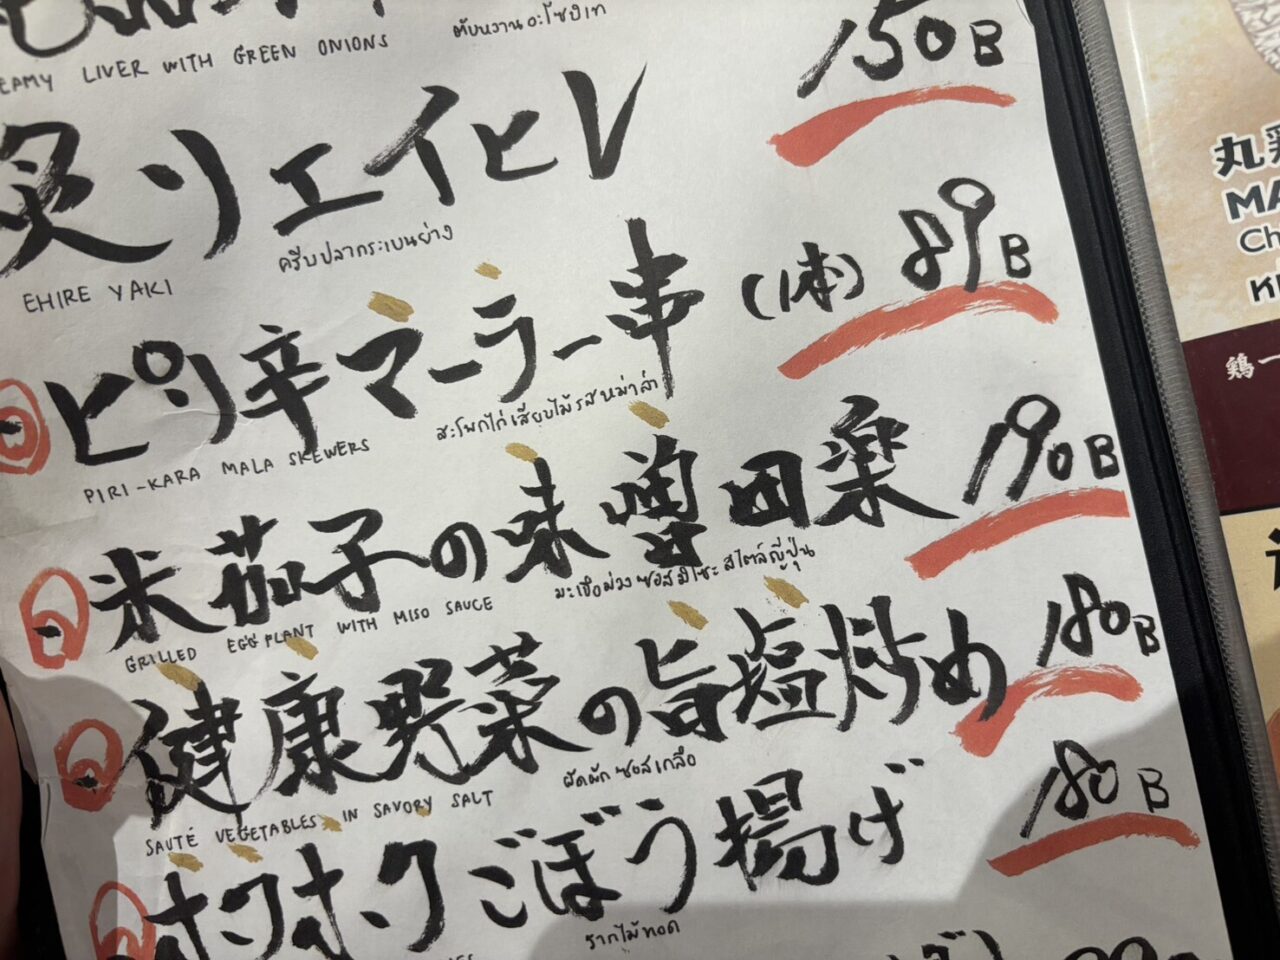 EAMY LIVER WITH GREEN ONIONS
ตับหวานอะโซบิเท
150B
炙りエイヒレ
EHIRE YAKI
ครีบปลากระเบนย่าง
ピリ辛マーラー串 (1本) 89B
PIRI-KARA MALA SKEWERS
สะโพกไก่เสียบไม้รสหม่าล่า
米茄子の味噌田楽 190B
GRILLED EGGPLANT WITH MISO SAUCE
มะเขือม่วงซอสมิโซะสไตล์ญี่ปุ่น
健康野菜の旨塩炒め 180B
SAUTÉ VEGETABLES IN SAVORY SALT
ผัดผักซอสเกลือ
ホクホクごぼう揚げ 180B
รากไม้ทอด
丸鶏
MA
Ch
鶏一